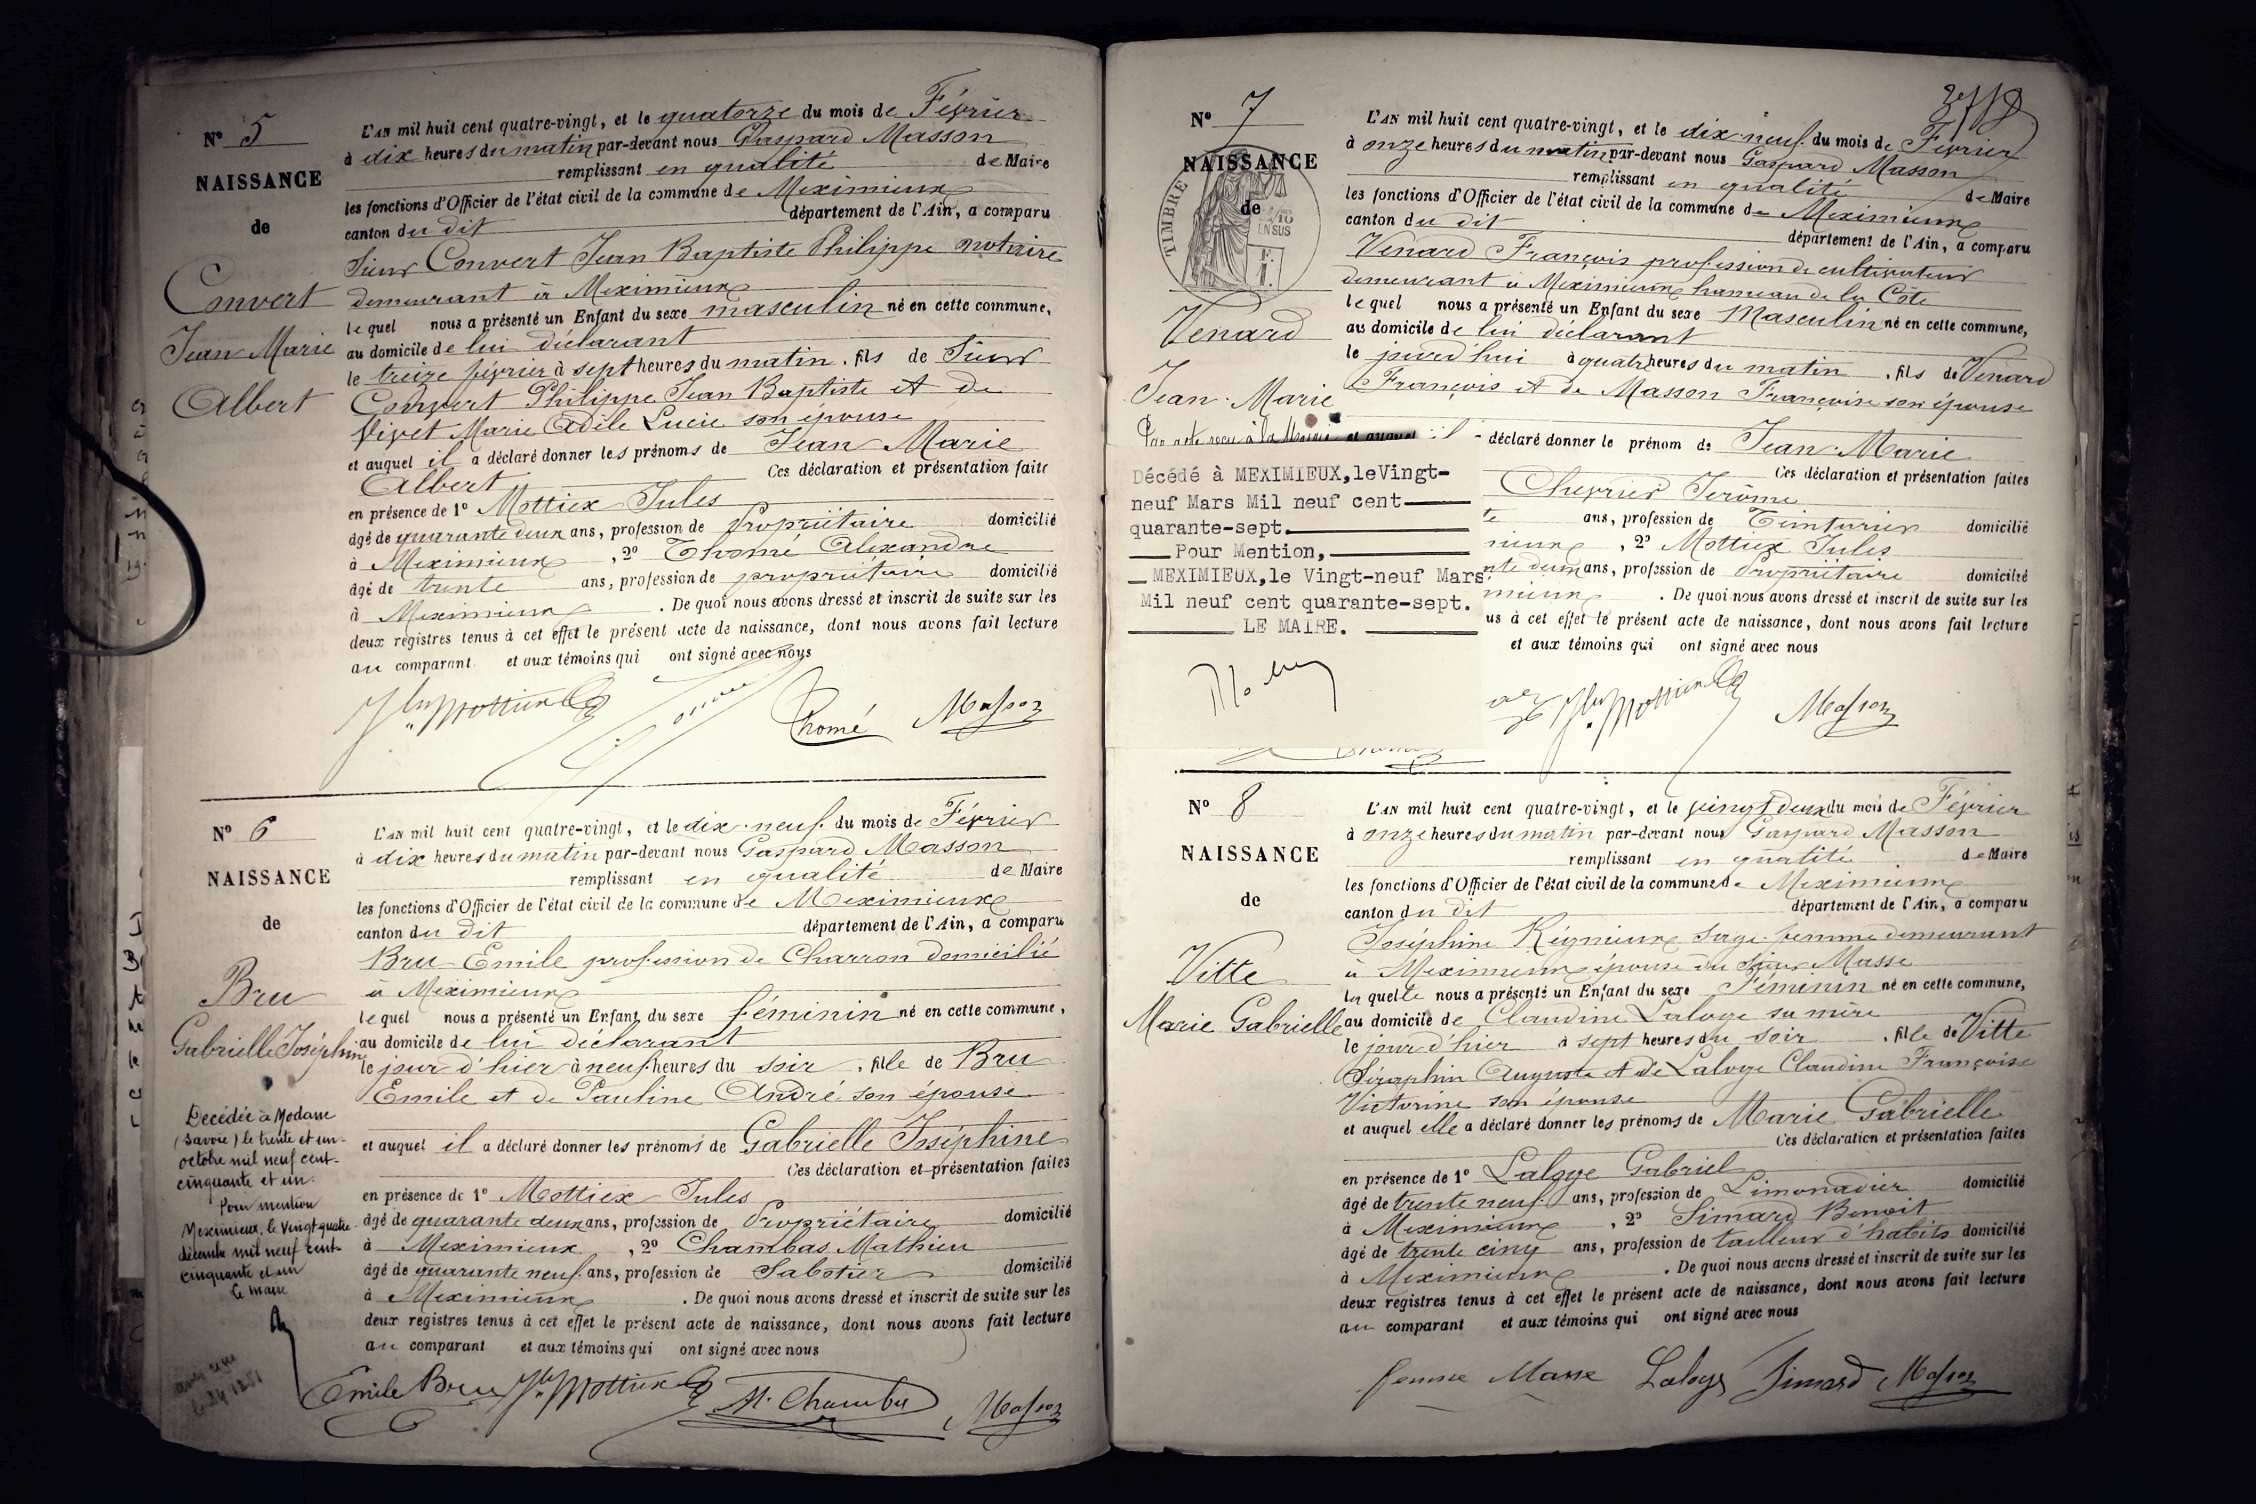 N° 5
NAISSANCE
de
Convert
Jean Marie
Albert
L'AN mil huit cent quatre-vingt, et le quatorze du mois de Février
à dix heures du matin par-devant nous Gaspard Masson
remplissant en qualité de Maire
les fonctions d'Officier de l'état civil de la commune de Meximieux
canton du dit département de l'Ain, a comparu
Sieur Convert Jean Baptiste Philippe notaire
demeurant à Meximieux
lequel nous a présenté un Enfant du sexe masculin né en cette commune,
au domicile de lui déclarant
le treize février à sept heures du matin, fils de Sieur
Convert Philippe Jean Baptiste et de
Vivet Marie Adèle Lucie son épouse
et auquel il a déclaré donner les prénoms de Jean Marie
Albert Ces déclaration et présentation faites
en présence de 1° Mottiex Jules
âgé de quarante deux ans, profession de Propriétaire domicilié
à Meximieux, 2° Thomé Alexandre
âgé de trente ans, profession de propriétaire domicilié
à Meximieux. De quoi nous avons dressé et inscrit de suite sur les
deux registres tenus à cet effet le présent acte de naissance, dont nous avons fait lecture
au comparant et aux témoins qui ont signé avec nous
Thomé Masson
N° 6
NAISSANCE
de
Bru
Gabrielle Joséphine
Decédée à Modane
(Savoie) le trente et un-
octobre mil neuf cent-
cinquante et un.
Pour mention
Meximieux, le vingt quatre
décembre mil neuf cent-
cinquante et un
Le maire
L'AN mil huit cent quatre-vingt, et le dix-neuf du mois de Février
à dix heures du matin par-devant nous Gaspard Masson
remplissant en qualité de Maire
les fonctions d'Officier de l'état civil de la commune de Meximieux
canton du dit département de l'Ain, a comparu
Bru Emile profession de Charron domicilié
à Meximieux
lequel nous a présenté un Enfant du sexe féminin né en cette commune,
au domicile de lui déclarant
le jour d'hier à neuf heures du soir, fille de Bru
Emile et de Pauline André son épouse
et auquel il a déclaré donner les prénoms de Gabrielle Joséphine
Ces déclaration et présentation faites
en présence de 1° Mottiex Jules
âgé de quarante deux ans, profession de Propriétaire domicilié
à Meximieux, 2° Chambas Mathieu
âgé de quarante neuf ans, profession de Sabotier domicilié
à Meximieux. De quoi nous avons dressé et inscrit de suite sur les
deux registres tenus à cet effet le présent acte de naissance, dont nous avons fait lecture
au comparant et aux témoins qui ont signé avec nous
Emile Bru M. Chambas Masson
N° 7
NAISSANCE
de
TIMBRE
Venard
Jean-Marie
Décédé à MEXIMIEUX, le Vingt-
neuf Mars Mil neuf cent
quarante-sept.
Pour Mention,
MEXIMIEUX, le Vingt-neuf Mars
Mil neuf cent quarante-sept.
LE MAIRE.
L'AN mil huit cent quatre-vingt, et le dix-neuf du mois de Février
à onze heures du matin par-devant nous Gaspard Masson
remplissant en qualité de Maire
les fonctions d'Officier de l'état civil de la commune de Meximieux
canton du dit département de l'Ain, a comparu
Venard François profession de cultivateur
demeurant à Meximieux hameau de la Côte
lequel nous a présenté un Enfant du sexe Masculin né en cette commune,
au domicile de lui déclarant
le jourd'hui à quatre heures du matin, fils de Venard
François et de Masson Françoise son épouse
déclaré donner le prénom de Jean-Marie
Ces déclaration et présentation faites
Chevrier Jérôme
ans, profession de Teinturier domicilié
, 2° Mottiex Jules
ans, profession de Propriétaire domicilié
. De quoi nous avons dressé et inscrit de suite sur les
us à cet effet le présent acte de naissance, dont nous avons fait lecture
et aux témoins qui ont signé avec nous
Masson
N° 8
NAISSANCE
de
Vitte
Marie Gabrielle
L'AN mil huit cent quatre-vingt, et le vingt deux du mois de Février
à onze heures du matin par-devant nous Gaspard Masson
remplissant en qualité de Maire
les fonctions d'Officier de l'état civil de la commune de Meximieux
canton du dit département de l'Ain, a comparu
Joséphine Régnieux sage femme demeurant
à Meximieux épouse du sieur Masse
laquelle nous a présenté un Enfant du sexe Féminin né en cette commune,
au domicile de Claudine Laloge sa mère
le jour d'hier à sept heures du soir, fille de Vitte
Séraphin Auguste et de Laloge Claudine Françoise
Victorine son épouse
et auquel elle a déclaré donner les prénoms de Marie Gabrielle
Ces déclaration et présentation faites
en présence de 1° Laloge Gabriel
âgé de trente neuf ans, profession de Limonadier domicilié
à Meximieux, 2° Simard Benoit
âgé de trente cinq ans, profession de tailleur d'habits domicilié
à Meximieux. De quoi nous avons dressé et inscrit de suite sur les
deux registres tenus à cet effet le présent acte de naissance, dont nous avons fait lecture
au comparant et aux témoins qui ont signé avec nous
femme Masse Laloge Simard Masson